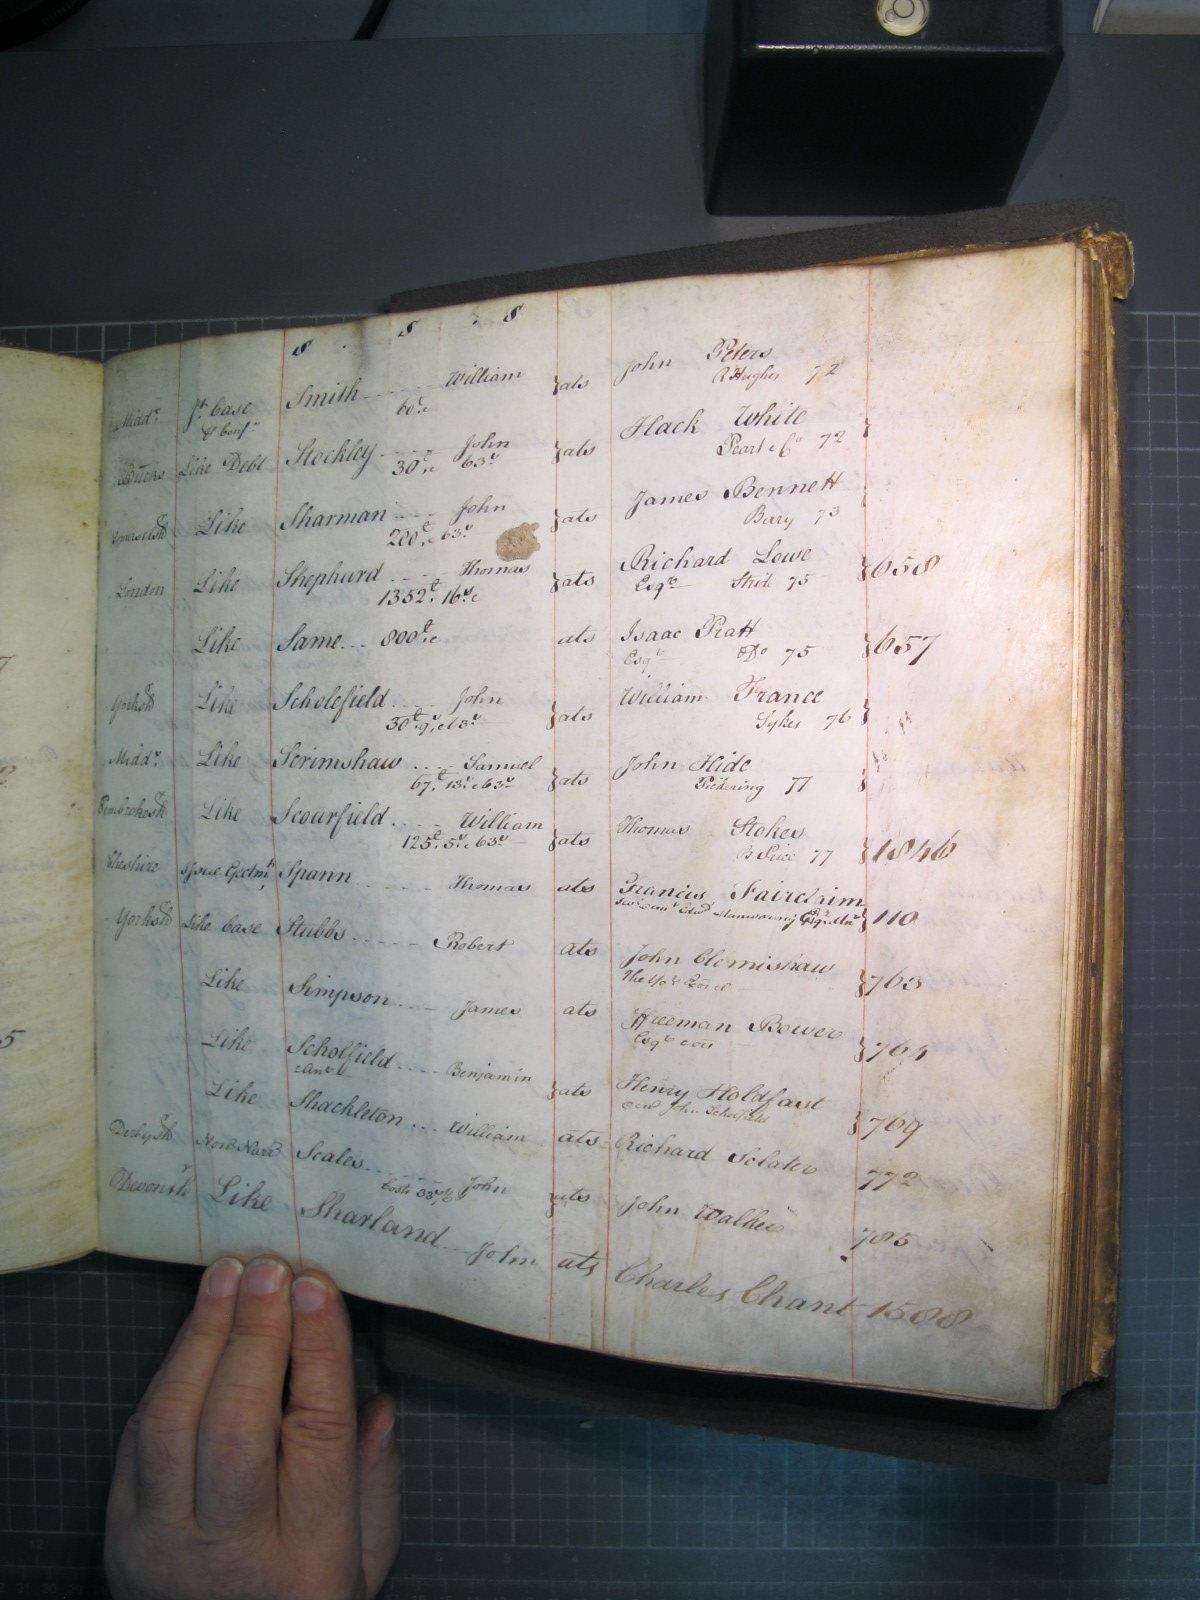 S S S
Midd.x Jt. Case Smith William }ats John Peters
& Conf.n 60.£ R Hughes 72
Bucks Like Debt Stockley John }ats Hack White }
30£ 63s Pearl & Co 72
Somersetsh Like Sharman John }ats James Bennett
200£ & 63s Bury 73
London Like Shephard Thomas }ats Richard Lowe }658
1352£ 16s Esqr 75
Like Same 800£ ats Isaac Pratt }657
Esqr Do 75
Yorksh Like Scholefield John }ats William France }
30£ 9s & 63s Sykes 76
Midd.x Like Scrimshaw Samuel }ats John Hide }
67£ 13s & 63s Pickering 77
Pembrokesh Like Scourfield William }ats Thomas Stokes }1846
125£ 5s & 63s B Price 77
Cheshire Issue Ejectmt Spann Thomas ats Francis Fairclaim }110
Yorksh Like Case Stubbs Robert ats John Clemishaw }763
Like Simpson James ats Freeman Bower }764
Esqr
Like Scholfield Benjamin }ats Henry Holdfast }769
John Scholfield
Like Shackleton William ats Richard Sclater 772
Derbysh Scales John }ats John Walker 785
Costs 33£
Devonsh Like Sharland John ats Charles Chant 1588